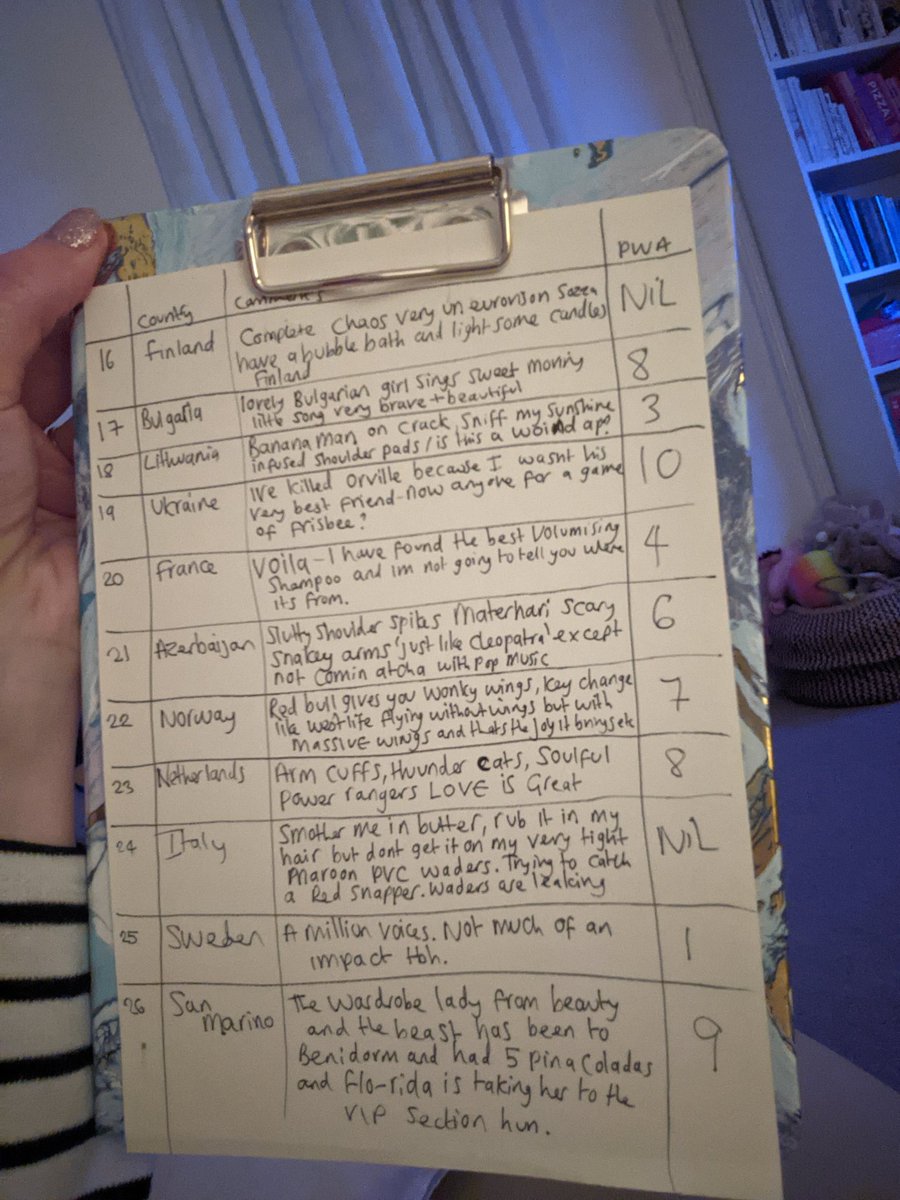 PIZZA
Country Comments PWA
16 Finland Complete chaos very un eurovision
have a bubble bath and light some candles
Finland
NiL
17 Bulgaria lovely Bulgarian girl sings sweet
little song very brave + beautiful
8
18 Lithuania Banana man on crack, Sniff my sunshine
infused shoulder pads / is this a ap?
3
19 Ukraine I've killed Orville because I wasnt his
very best friend - now anyone for a game
of frisbee?
10
20 France Voila - I have found the best Volumising
Shampoo and im not going to tell you were
its from.
4
21 Azerbaijan Slutty shoulder spikes Materhari scary
snakey arms 'just like Cleopatra' except
not comin atcha with pop music
6
22 Norway Red bull gives you wonky wings, key change
like westlife flying without wings but with
MASSIVE wings and thats the joy it brings
7
23 Netherlands Arm cuffs, thunder cats, Soulful
power rangers LOVE is Great
8
24 Italy Smother me in butter, rub it in my
hair but dont get it on my very tight
Maroon PVC waders. Trying to catch
a Red snapper. Waders are leaking
NiL
25 Sweden A million voices. Not much of an
impact tbh.
1
26 San Marino The wardrobe lady from beauty
and the beast has been to
Benidorm and had 5 pina coladas
and flo-rida is taking her to the
VIP section hun.
9